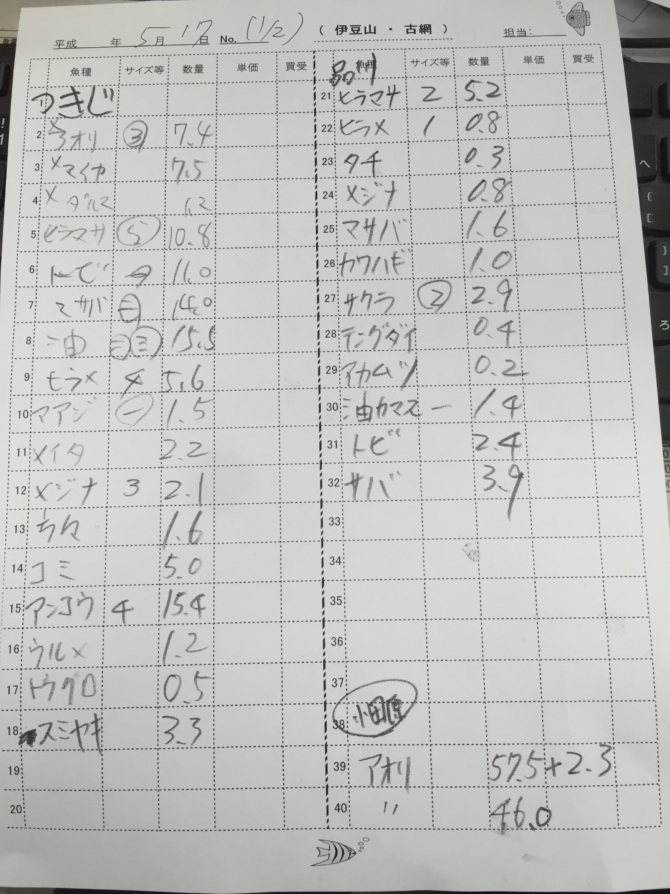 平成 年 5月 17日 No. (1/2) ( 伊豆山 ・ 古網 ) 担当:
魚種 サイズ等 数量 単価 買受
1 つきじ
2 × アオリ ③ 7.4
3 × マイカ 7.5
4 × ダルマ 1.2
5 ヒラマサ 10.8
6 トビ 11.0
7 マサバ 14.0
8 油 ㊁㊂ 15.5
9 ヒラメ 4 5.6
10 マアジ ㊀ 1.5
11 メイタ 2.2
12 メジナ 3 2.1
13 1.6
14 コミ 5.0
15 アンコウ 4 15.4
16 ウルメ 1.2
17 トウグロ 0.5
18 スミヤキ 3.3
19
20
品川
魚種 サイズ等 数量 単価 買受
21 ヒラマサ 2 5.2
22 ヒラメ 1 0.8
23 タチ 0.3
24 メジナ 0.8
25 マサバ 1.6
26 カワハギ 1.0
27 サクラ ② 2.9
28 テングダイ 0.4
29 アカムツ 0.2
30 油カマス 一 1.4
31 トビ 2.4
32 サバ 3.9
33
34
35
36
37
38 小田原
39 アオリ 57.5+2.3
40 〃 46.0